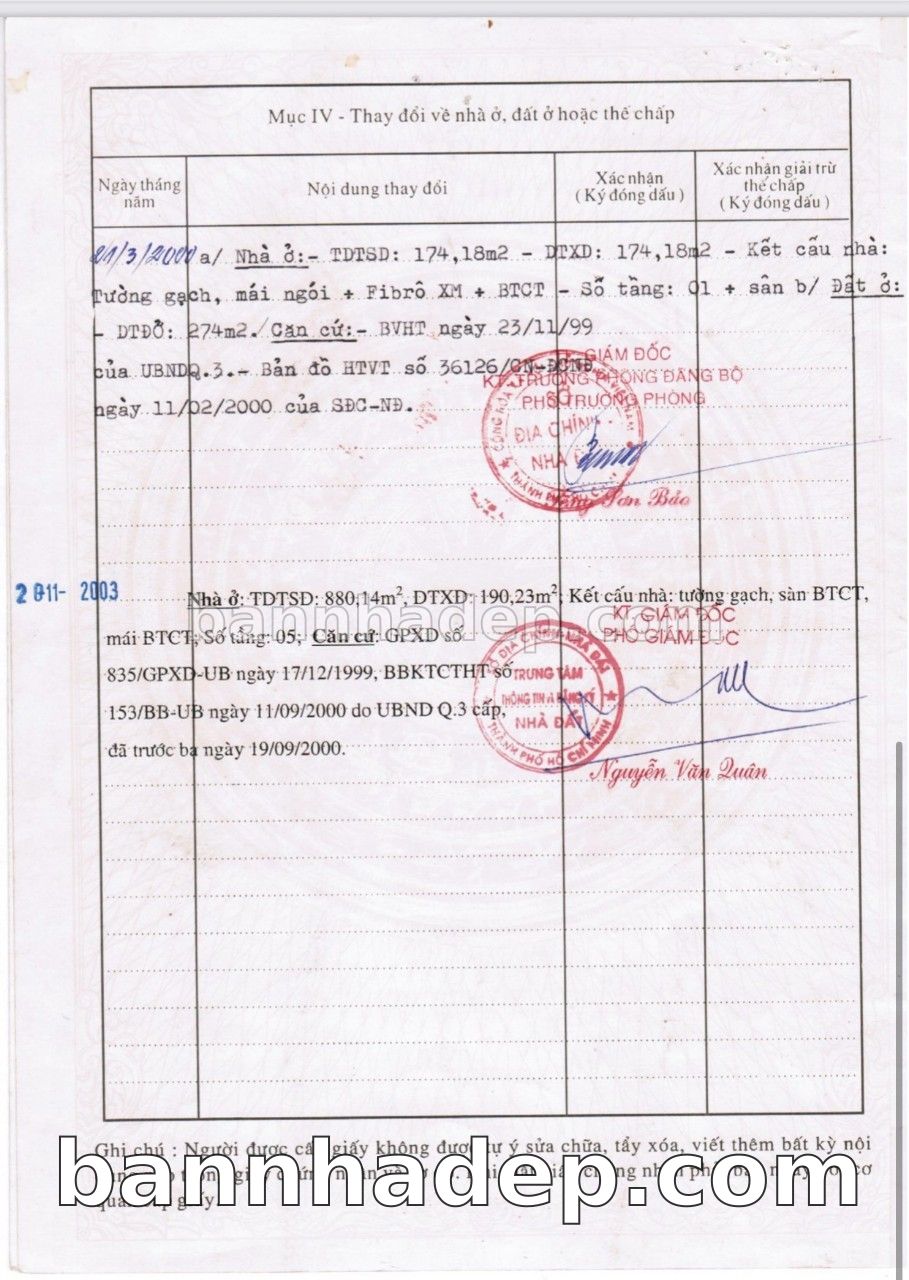 Mục IV - Thay đổi về nhà ở, đất ở hoặc thế chấp
Ngày tháng năm
Nội dung thay đổi
Xác nhận
( Ký đóng dấu )
Xác nhận giải trừ
thế chấp
( Ký đóng dấu )
21/3/2000 a/ Nhà ở:- TDTSD: 174,18m2 - DTXD: 174,18m2 - Kết cấu nhà:
Tường gạch, mái ngói + Fibrô XM + BTCT - Số tầng: 01 + sân b/ Đất ở:
- DTĐỞ: 274m2./ Căn cứ:- BVHT ngày 23/11/99
của UBNDQ.3.- Bản đồ HTVT số 36126/GN-ĐCNĐ
ngày 11/02/2000 của SĐC-NĐ.
GIÁM ĐỐC
KT TRƯỞNG PHÒNG ĐĂNG BỘ
PHÓ TRƯỞNG PHÒNG
ĐỊA CHÍNH -
NHÀ
Sơn Bảo
2011- 2003
Nhà ở: TDTSD: 880,14m², DTXD: 190,23m², Kết cấu nhà: tường gạch, sàn BTCT,
bannhadep.com
mái BTCT, Số tầng: 05, Căn cứ: GPXD số
835/GPXD-UB ngày 17/12/1999, BBKTCTHT số
153/BB-UB ngày 11/09/2000 do UBND Q.3 cấp,
đã trước bạ ngày 19/09/2000.
KT. GIÁM ĐỐC
PHÓ GIÁM ĐỐC
SỞ ĐỊA CHÍNH - NHÀ ĐẤT
TRUNG TÂM
THÔNG TIN VÀ ĐĂNG KÝ
NHÀ ĐẤT
THÀNH PHỐ HỒ CHÍ MINH
Nguyễn Văn Quân
Ghi chú : Người được cấp giấy không được tự ý sửa chữa, tẩy xóa, viết thêm bất kỳ nội
bannhadep.com